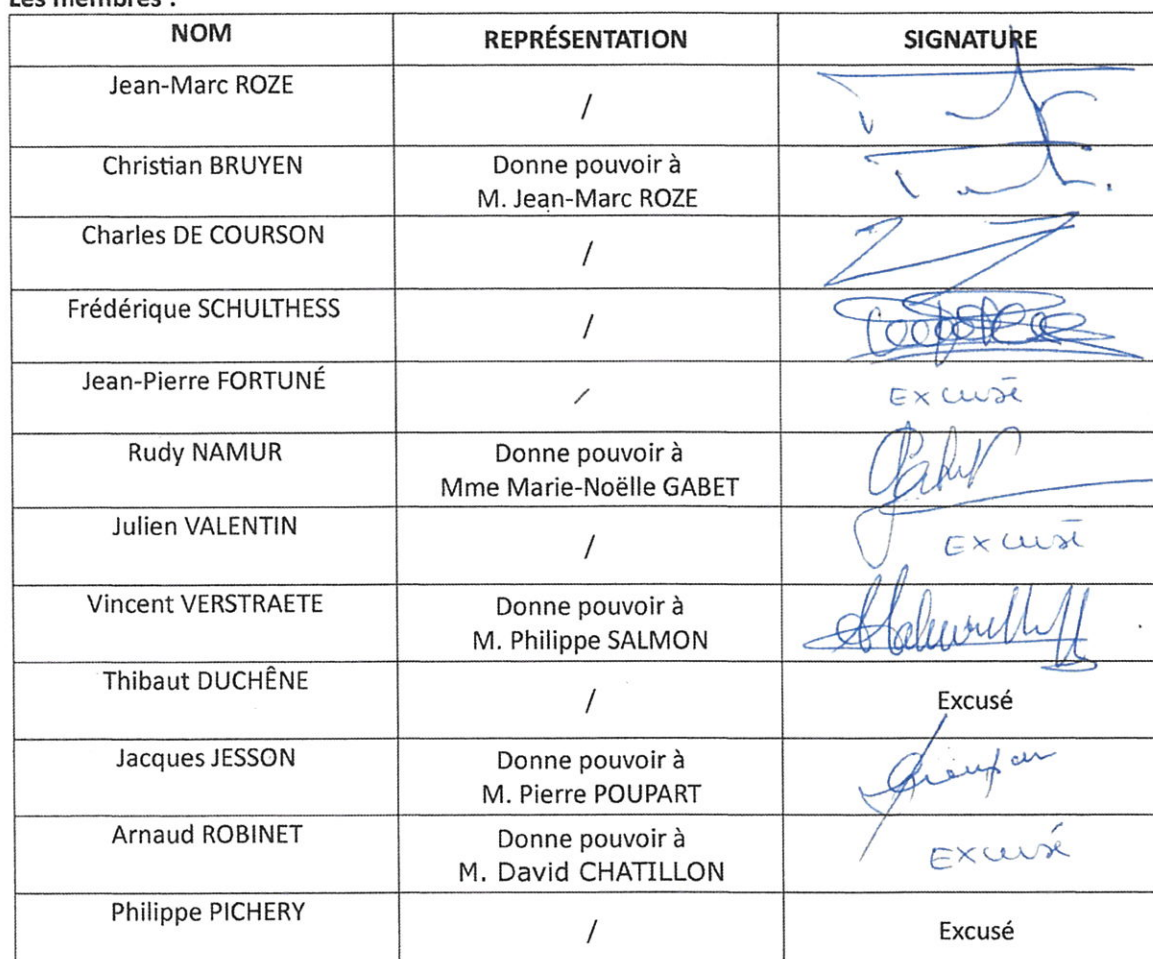 Les membres :
NOM REPRÉSENTATION SIGNATURE
Jean-Marc ROZE /
Christian BRUYEN Donne pouvoir à
M. Jean-Marc ROZE
Charles DE COURSON /
Frédérique SCHULTHESS /
Jean-Pierre FORTUNÉ / EXCUSÉ
Rudy NAMUR Donne pouvoir à
Mme Marie-Noëlle GABET Gabet
Julien VALENTIN / EXCUSÉ
Vincent VERSTRAETE Donne pouvoir à
M. Philippe SALMON
Thibaut DUCHÊNE / Excusé
Jacques JESSON Donne pouvoir à
M. Pierre POUPART
Arnaud ROBINET Donne pouvoir à
M. David CHATILLON EXCUSÉ
Philippe PICHERY / Excusé